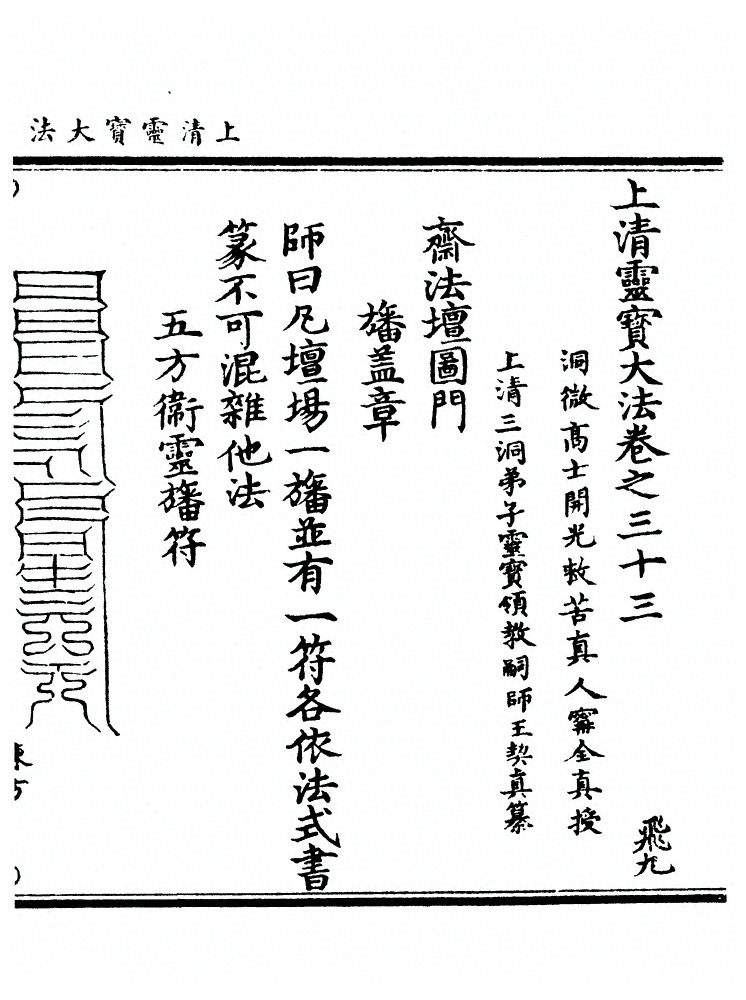 上清靈寶大法
上清靈寶大法卷之三十三
飛九
洞微高士開光救苦真人甯全真授
上清三洞弟子靈寶領教嗣師王契真纂
齋法壇圖門
旛盖章
師曰凡壇場一旛並有一符各依法式書
篆不可混雜他法
五方衞靈旛符